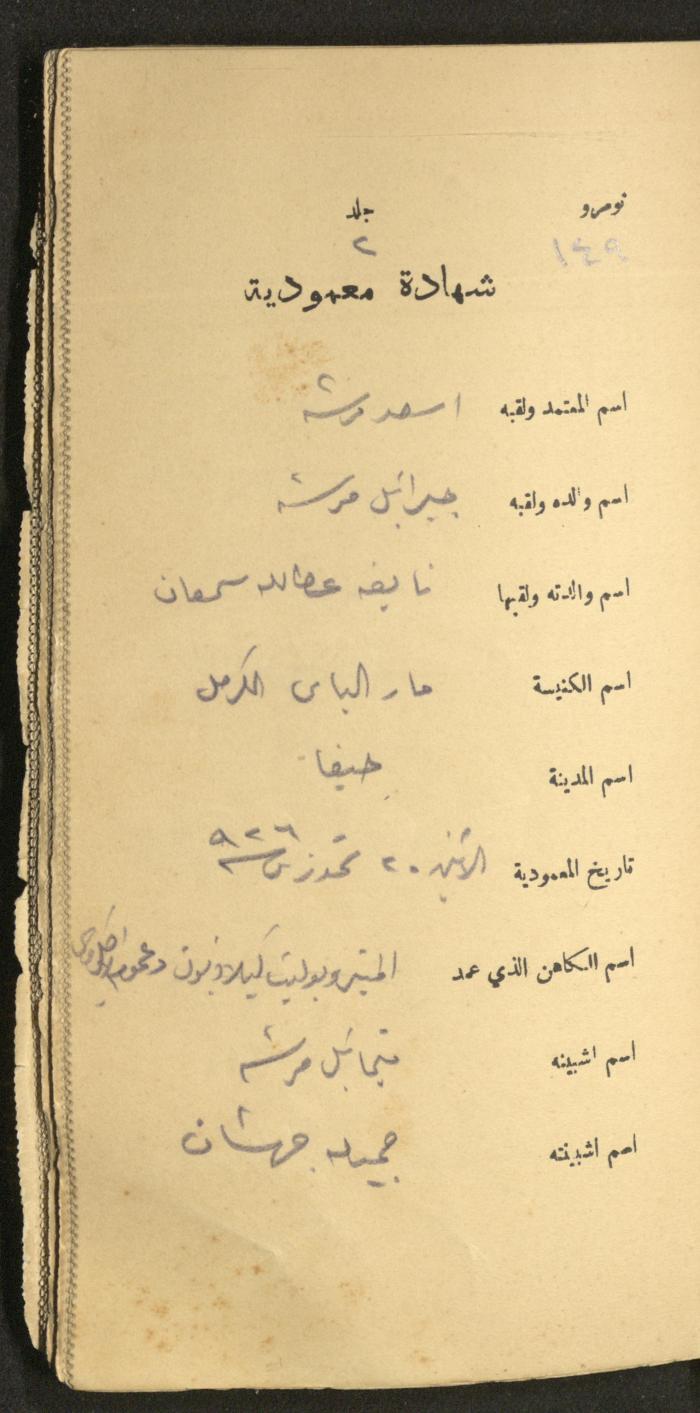 نومرو جلد
١٤٩ ٢
شهادة معمودية
اسم المعتمد ولقبه اسعد مرشه
اسم والده ولقبه جبرائيل مرشه
اسم والدته ولقبها نايفه عطالله سمعان
اسم الكنيسة مار الياس الكرمل
اسم المدينة حيفا
تاريخ المعمودية الاثنين ٢٠ تموز سنة ٩٢٦
اسم الكاهن الذي عمد المتروبوليت
اسم اشبينه ميخائيل مرشه
اسم اشبينته جميله جهشان